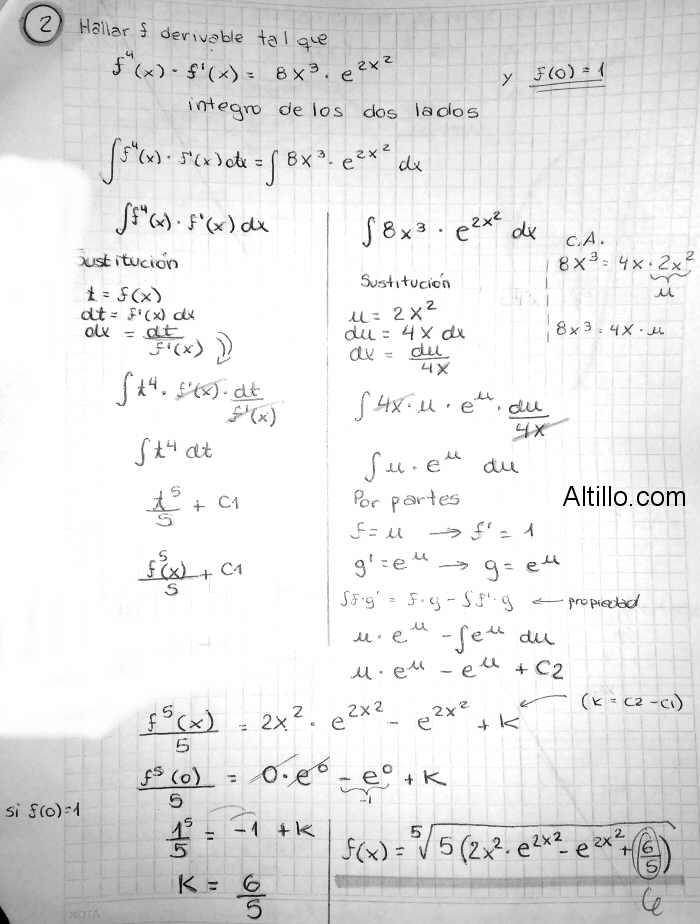 2 Hallar f derivable tal que
f⁴(x) · f'(x) = 8x³ · e^(2x²) y f(0) = 1
integro de los dos lados
∫f⁴(x) · f'(x) dx = ∫ 8x³ · e^(2x²) dx
∫f⁴(x) · f'(x) dx
Sustitución
t = f(x)
dt = f'(x) dx
dx = dt / f'(x)
∫t⁴ · f'(x) · dt / f'(x)
∫t⁴ dt
t⁵/5 + C1
f⁵(x)/5 + C1
∫8x³ · e^(2x²) dx
C.A.
8x³ = 4x · 2x²
μ
8x³ = 4x · μ
Sustitución
μ = 2x²
du = 4x dx
dx = du / 4x
∫ 4x · μ · e^μ · du / 4x
∫ μ · e^μ du
Por partes
f = μ → f' = 1
g' = e^μ → g = e^μ
∫f·g' = f·g - ∫f'·g ← propiedad
μ · e^μ - ∫e^μ du
μ · e^μ - e^μ + C2
f⁵(x)/5 = 2x² · e^(2x²) - e^(2x²) + K (K = C2 - C1)
f⁵(0)/5 = 0 · e⁰ - e⁰ + K
-1
si f(0)=1
1⁵/5 = -1 + K
K = 6/5
f(x) = ⁵√(5(2x² · e^(2x²) - e^(2x²) + 6/5))
6
Altillo.com